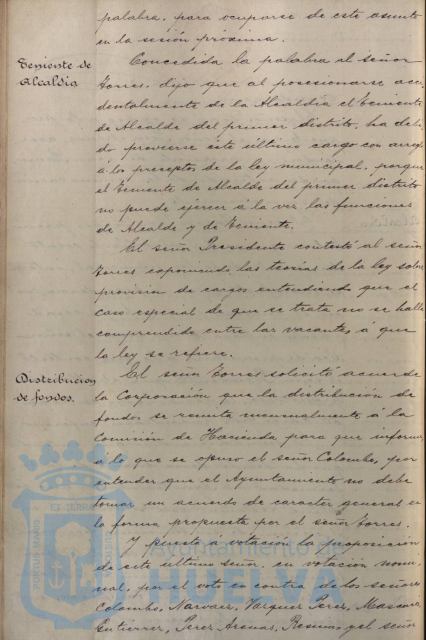 palabra, para ocuparse de este asunto
en la sesión próxima.
Teniente de
Alcaldía
Concedida la palabra al señor
Torres, dijo que al posesionarse acci
dentalmente de la Alcaldía el Teniente
de Alcalde del primer distrito, ha debi
do proveerse este último cargo con arreg
á los preceptos de la ley municipal, porque
el Teniente de Alcalde del primer distrito
no puede ejercer á la vez las funciones
de Alcalde y de Teniente.
El señor Presidente contestó al señor
Torres exponiendo las teorías de la ley sobre
provisión de cargos entendiendo que el
caso especial de que se trata no se halla
comprendido entre las vacantes á que
la ley se refiere.
Distribución
de fondos.
El señor Torres solicitó acuerde
la Corporación que la distribución de
fondos se remita mensualmente á la
Comisión de Hacienda para que informe,
á lo que se opuso el señor Colombo, por
entender que el Ayuntamiento no debe
tomar un acuerdo de carácter general en
la forma propuesta por el señor Torres.
Y puesta á votación la proposición
de este último señor, en votación nomi
nal, por el voto en contra de los señores
Colombo, Narvaez, Vazquez Perez,
Gutierrez, Perez Arenas, y el señor
Ayuntamiento de
HUELVA